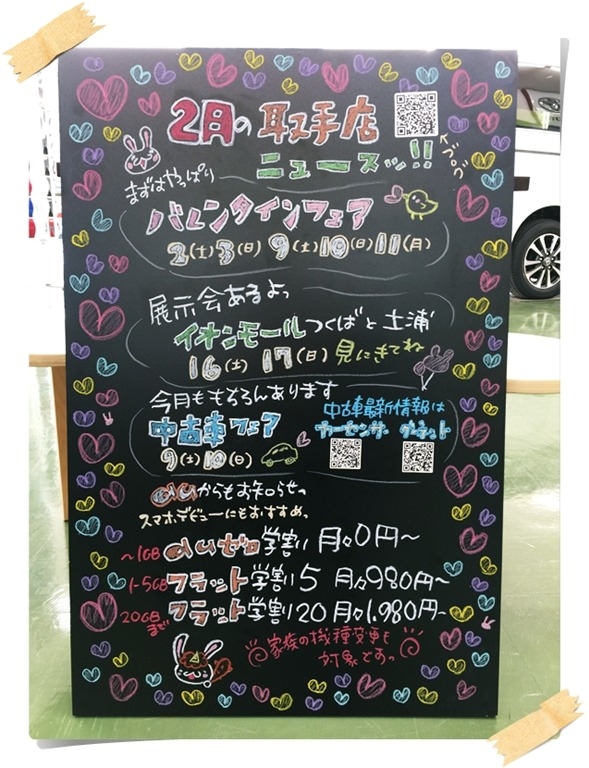 2月の取手店
ニュースッ!!
←ブログ
まずはやっぱり
バレンタインフェア
2(土)3(日)9(土)10(日)11(月)
展示会あるよっ
イオンモールつくばと土浦
16(土)17(日)見にきてね
今月ももちろんあります
中古車フェア
9(土)10(日)
中古車最新情報は
カーセンサー グーネット
auからもお知らせ。
スマホデビューにもおすすめ。
~1GB auゼロ学割 月々0円~
1-5GB フラット学割5 月々980円~
20GBまで フラット学割20 月々1,980円~
家族の機種変更も
対象ですっ